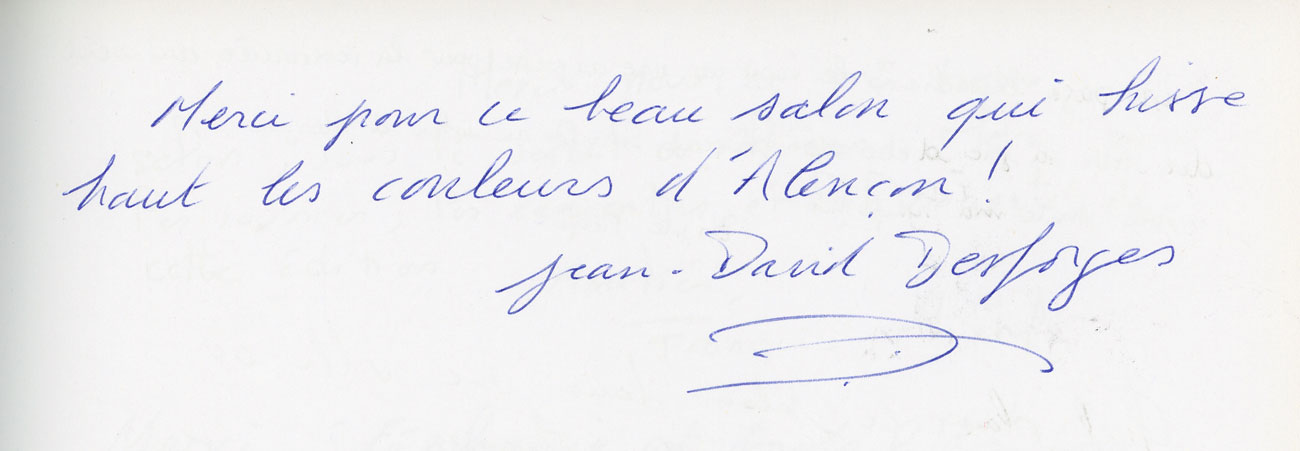 Merci pour ce beau salon qui hisse
haut les couleurs d'Alençon !
Jean-David Desforges